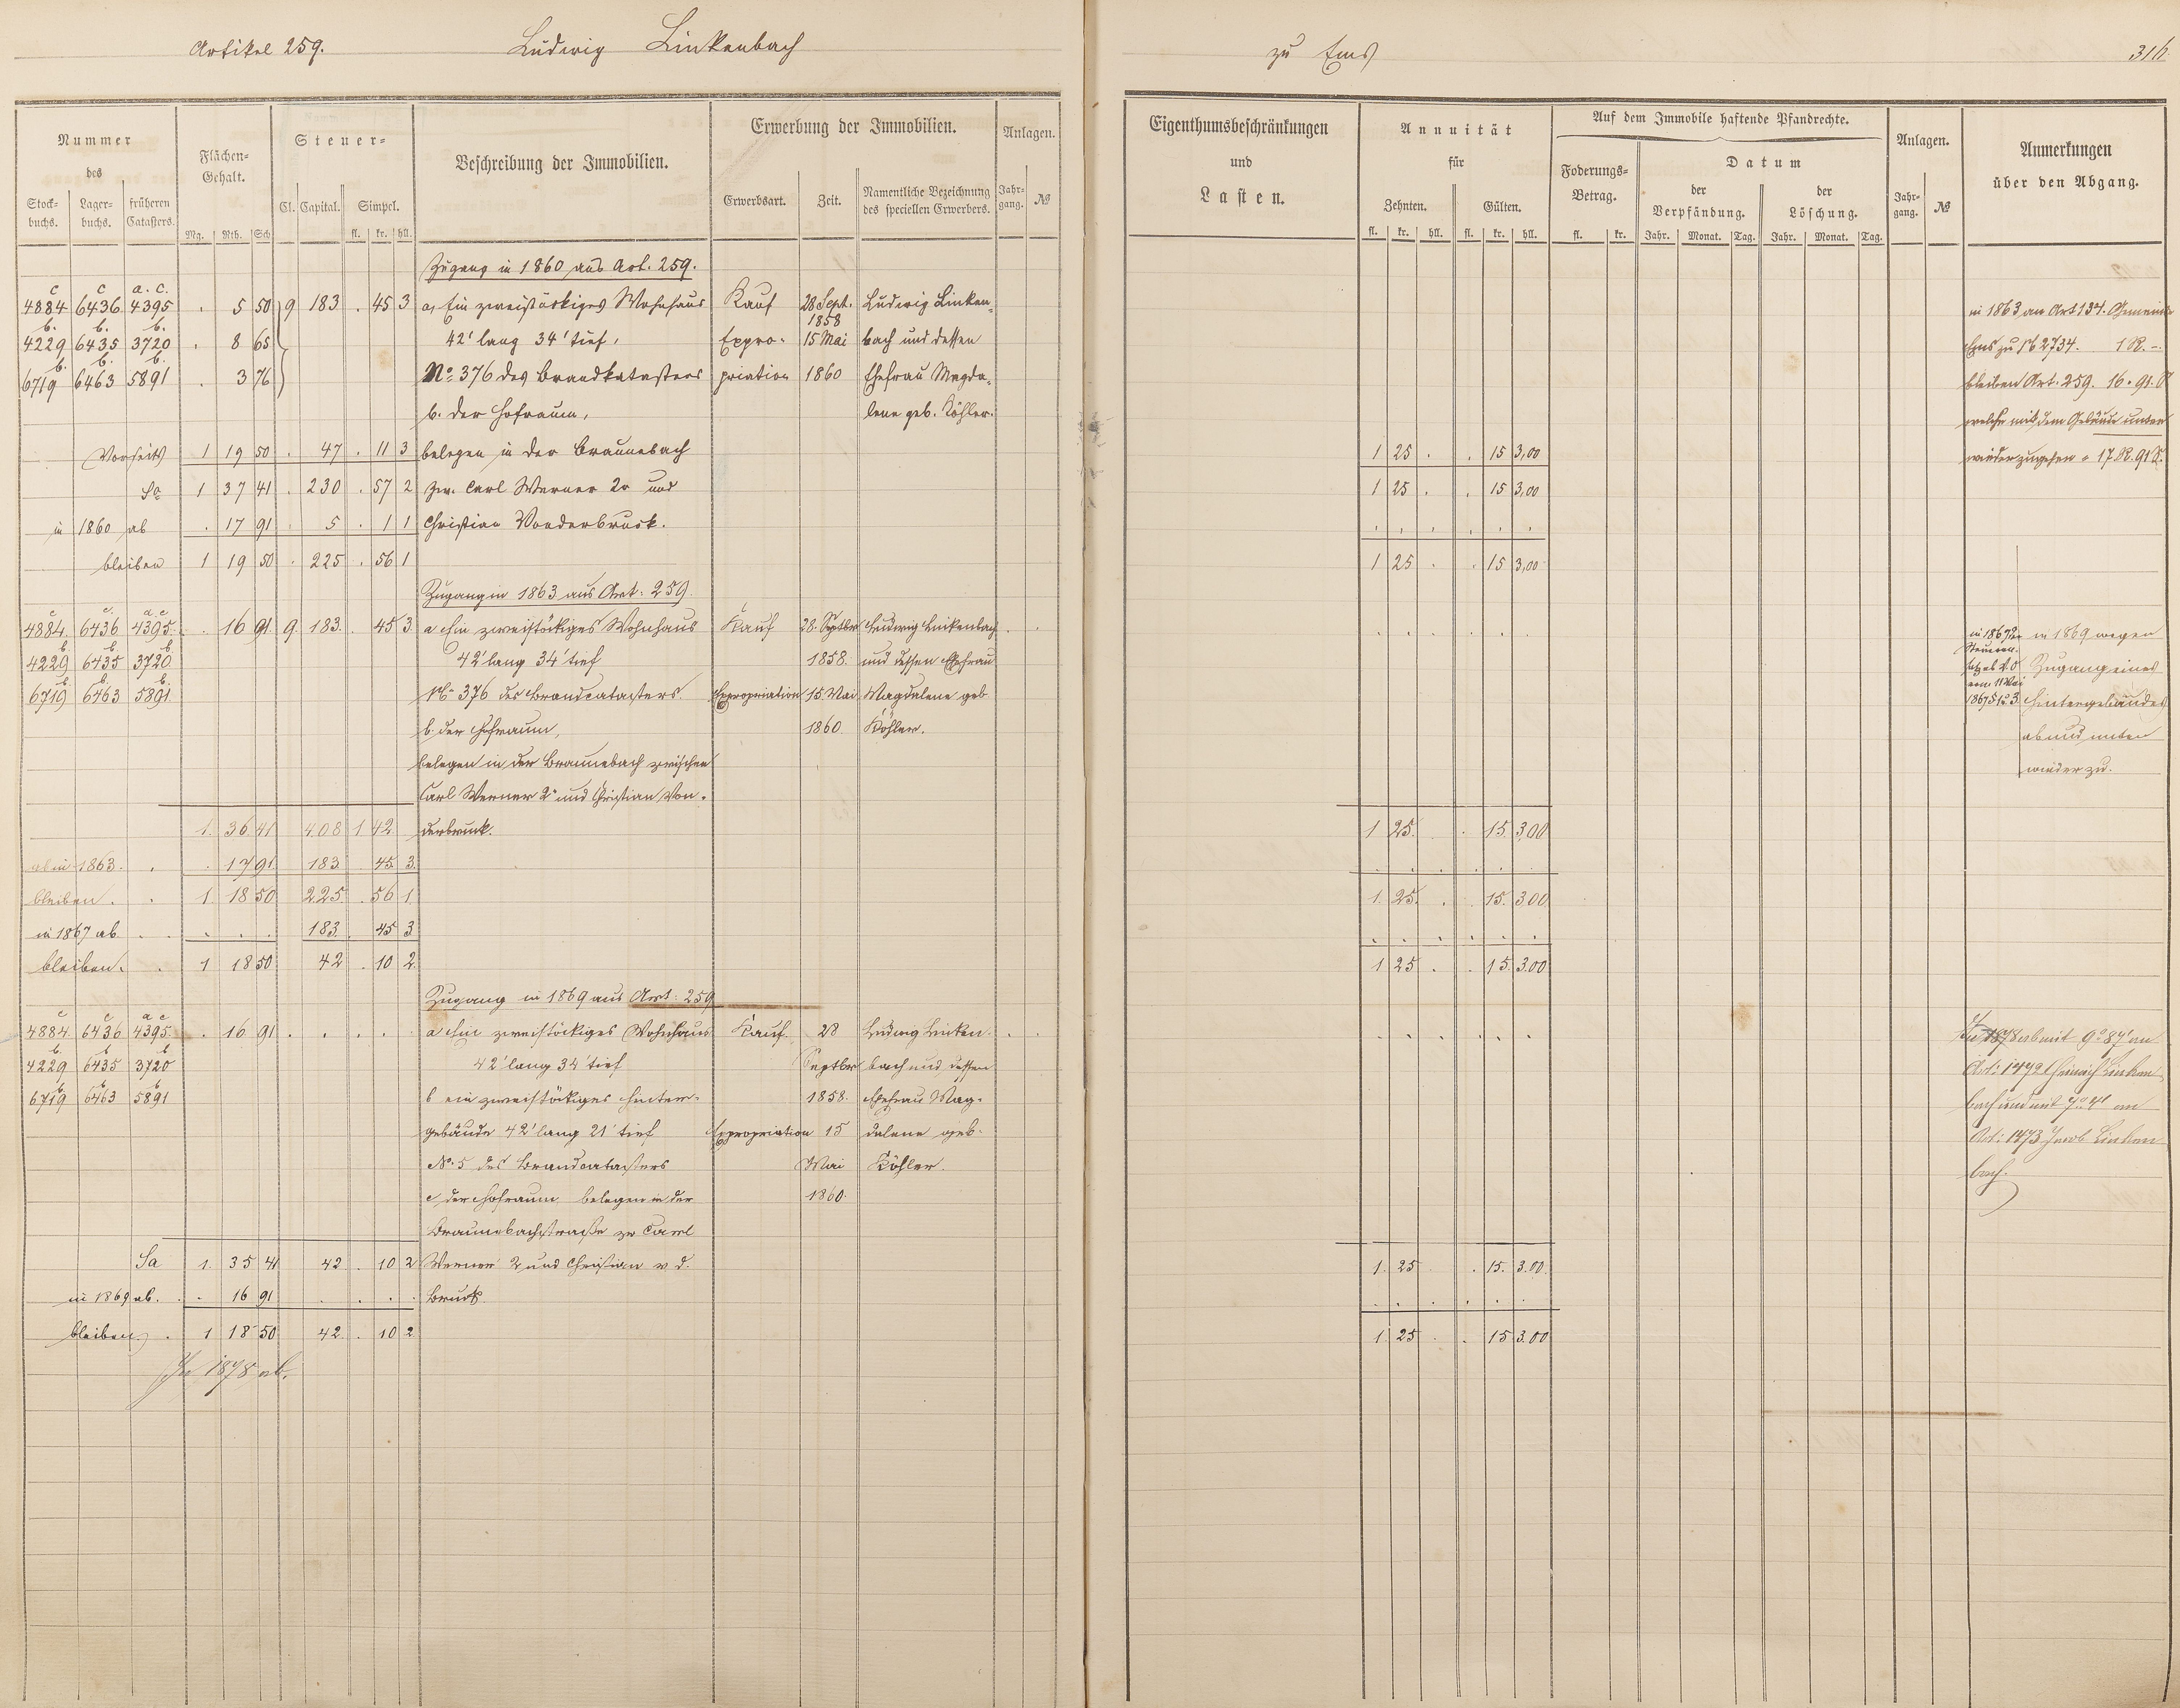 Artikel 259. Ludwig Linkenbach zu Ems 316
Nummer des
Stock-buchs. Lager-buchs. früheren Catasters.
Flächen-Gehalt.
Mg. Rth. Sch.
Steuer-
Cl. Capital. Simpel.
fl. kr. hll.
Beschreibung der Immobilien.
Erwerbung der Immobilien.
Erwerbsart. Zeit. Namentliche Bezeichnung des speciellen Erwerbers.
Anlagen.
Jahr-gang. №
Eigenthumsbeschränkungen
und
Lasten.
Annuität
für
Zehnten. Gülten.
fl. kr. hll. fl. kr. hll.
Auf dem Immobile haftende Pfandrechte.
Foderungs-Betrag.
fl. kr.
Datum
der Verpfändung. der Löschung.
Jahr. Monat. Tag. Jahr. Monat. Tag.
Anlagen.
Jahr-gang. №
Anmerkungen
über den Abgang.
Zugang in 1860 aus Art. 259.
c c a. c.
4884 6436 4395 . 5 50 9 183 . 45 3 a, Ein zweistöckiges Wohnhaus Kauf 28 Sept. 1858 Ludwig Linken- in 1863 an Art 134. Gemeinde
b. b. b.
4229 6435 3720 . 8 65 42' lang 34' tief, Expro- 15 Mai bach und dessen Ems zu № 2734. 1 R. -
b. b. b.
6719 6463 5891 . 3 76 No 376 des Brandkatasters priation 1860 Ehefrau Magda- bleiben Art. 259. 16. 91.
b. der Hofraum, lene geb. Köhler. welche mit dem Gebäude unten
Vorseits 1 19 50 . 47 . 11 3 belegen in der Braunebach 1 25 . . 15 3,00 wieder zugehen = 17. R. 91 S.
Sa 1 37 41 . 230 . 57 2 zw. Carl Werner 2r und 1 25 . . 15 3,00
in 1860 ab . 17 91 . 5 . 1 1 Christian Vonderbruck.
bleiben 1 19 50 . 225 . 56 1 1 25 . . 15 3,00
Zugang in 1863 aus Art: 259.
c c. a. c
4884. 6436 4395. . 16 91. 9. 183. . 45 3. a Ein zweistöckiges Wohnhaus Kauf 28. Septbr Ludwig Linkenbach in 1869 wegen
b b b
4229 6435 3720. 42' lang 34' tief 1858. und dessen Ehefrau Zugang eines
b. b. b.
6719 6463 5891. № 376 des Brandcatasters. Expropriation 15. Mai Magdalene geb Hintergebäudes
b. der Hofraum, 1860. Köhler. ab und unten
belegen in der Braunebach zwischen wieder zu.
Carl Werner 2r und Christian Von-
1. 36 41 408 1 42 derbruck. 1 25. . 15. 3,00
ab in 1863. . . 17 91 183. . 45. 3.
bleiben. . 1. 18 50 225. . 56 1. 1. 25. . . 15. 3.00
in 1867 ab. . . . . 183. . 45 3
bleiben. . 1 18 50 42 . 10 2. 1 25 . . 15. 3.00
Zugang in 1869 aus Art: 259
c c a c
4884. 6436 4395. . 16 91 . . . . a Ein zweistöckiges Wohnhaus Kauf. 28 Ludwig Linken- In 1878 ab mit 9° 87' an
b. b b
4229 6435 3720 42' lang 34' tief Septbr bach und dessen Art: 1472 Heinrich Linken
b. b b
6719 6463 5891 b ein zweistöckiges Hinter- 1858. Ehefrau Mag- bach und mit 7° 4' an
gebäude 42' lang 21' tief Expropriation 15 dalene geb. Art: 1473 Jacob Linken
No. 5 des Brandcatasters Mai Köhler. bach.
c der Hofraum belegen in der 1860.
Braunebachstraße zw Carl
Sa 1. 35 41 42 . 10 2 Werner 2r und Christian v d. 1. 25 . 15. 3.00.
in 1869 ab. . . 16 91 . . . . Bruck.
bleiben . 1 18 50 42 . 10 2 1. 25 . . 15 3.00
In 1878 ab.